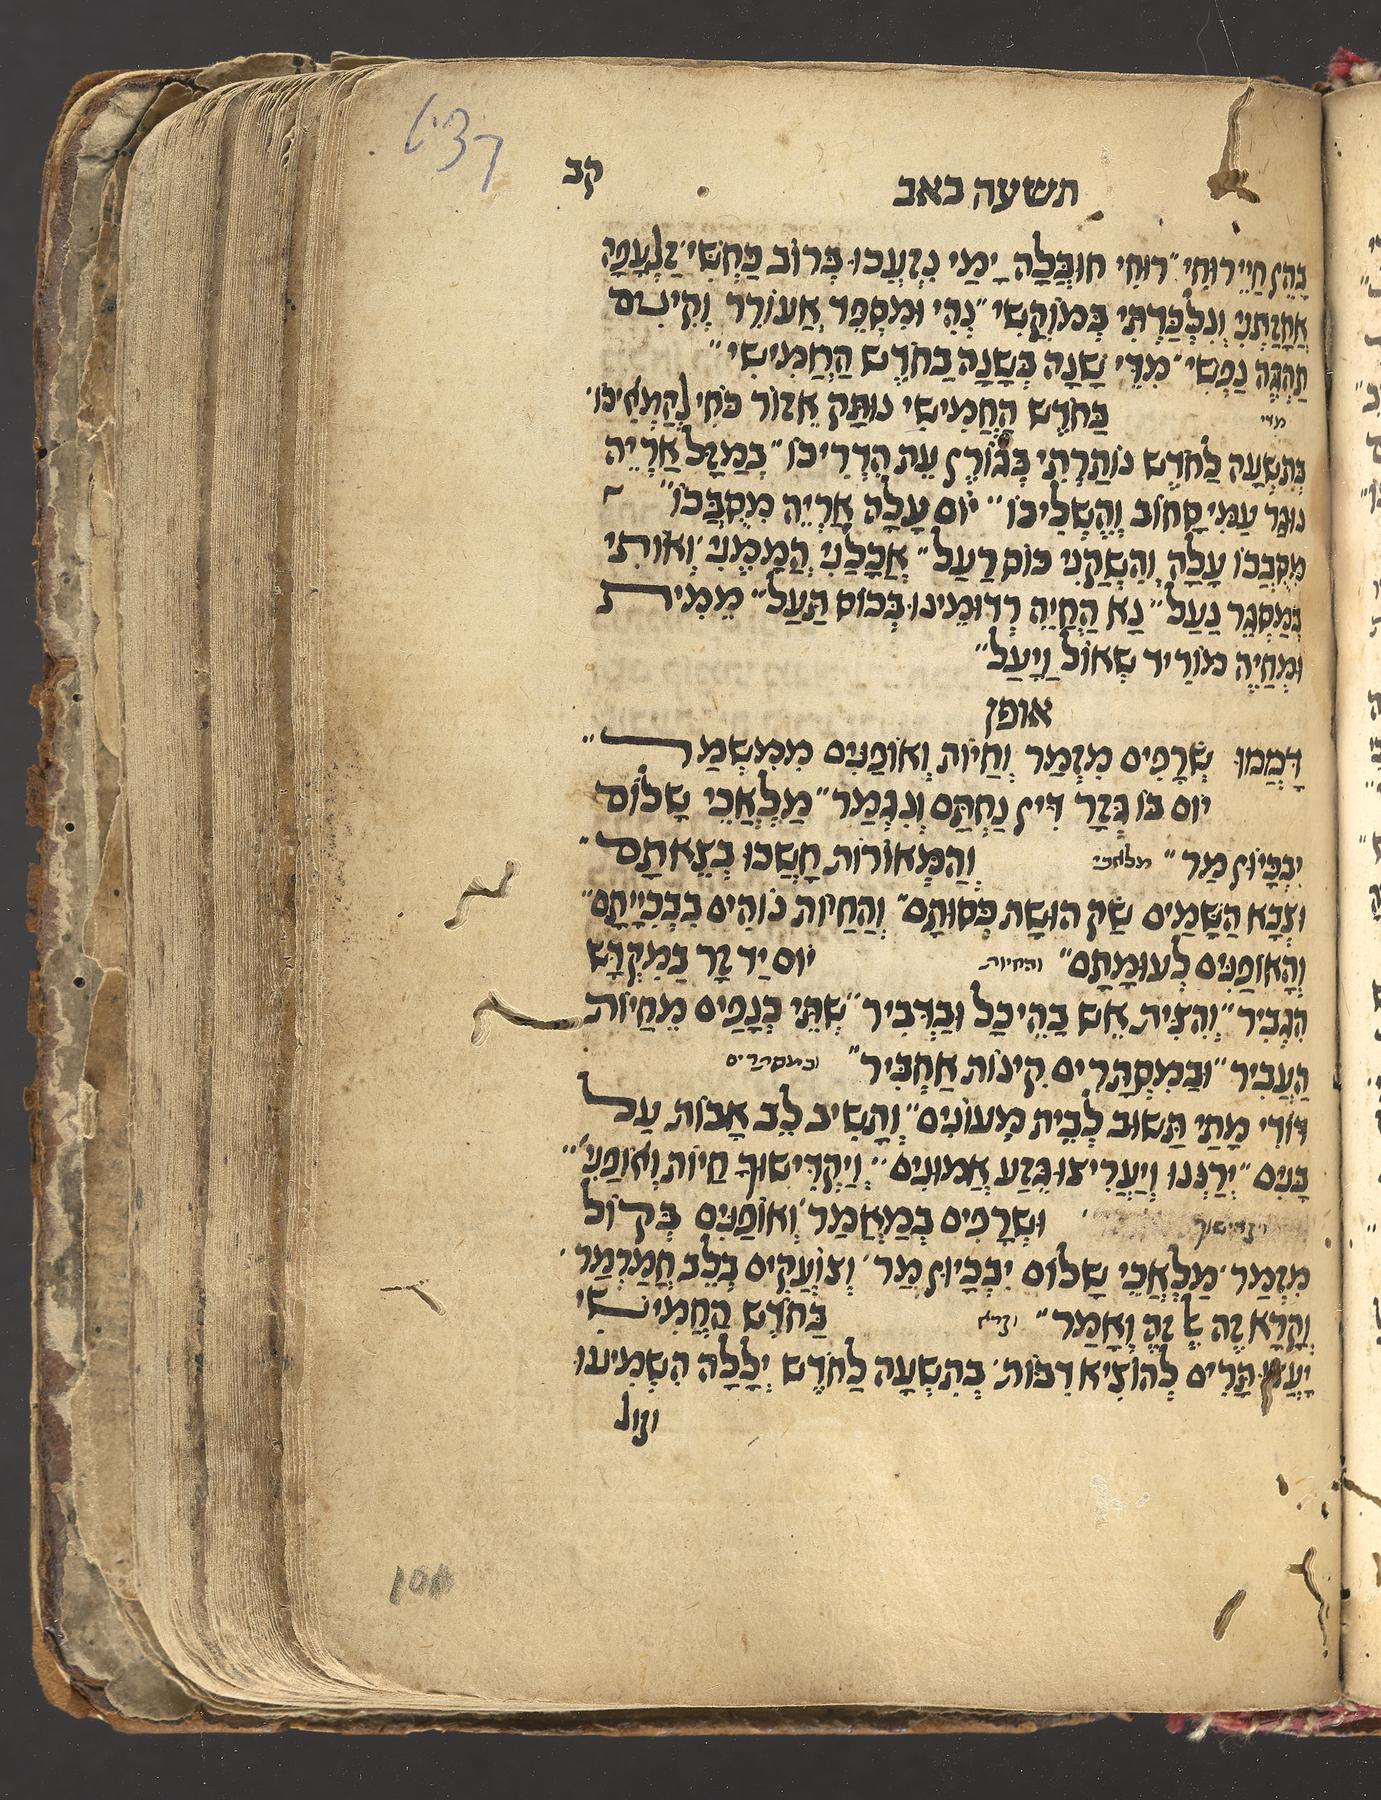 קב
תשעה באב
בְהֵן חַיֵי רוּחִי״ רוּחִי חוּבָּלָה יָמַי נִזְעֲכוּ בְּרוֹב כַּחְשִׁי״ זַלְעָפָה
אֲחָזַתְנִי וְנִלְכַּדְתִּי בְּמוֹקְשִׁי״ נְהִי וּמִסְפֵּד אֲעוֹרֵר וְקִינִים
תֶּהְגֶּה נַפְשִׁי״ מִדֵּי שָׁנָה בְּשָׁנָה בַּחֹדֶשׁ הַחֲמִישִׁי״
מדי בַּחֹדֶשׁ הַחֲמִישִׁי נוּתַּק אֵזוֹר כֹּחִי
בְּתִשְׁעָה לַחֹדֶשׁ נוֹתַרְתִּי בְּגוֹרֶן עֵת הִדְרִיכוֹ״ בְּמַזַּל אַרְיֵה
נוּגַּר עַמִּי סָחוֹב וְהִשְׁלִיכוֹ״ יוֹם עָלָה אַרְיֵה מִסֻּבְּכוֹ״
מִסֻּבְּכוֹ עָלָה וְהִשְׁקַנִי כּוֹס רַעַל״ אֲכָלַנִי הֲמָמַנִי וְאוֹתִי
בְּמַסְגֵּר נָעַל״ נָא הַחֲיֵה רְדוּמֵינוּ בְּכוֹס תַּעַל״ מֵמִית
וּמְחַיֶּה מוֹרִיד שְׁאוֹל וַיָּעַל״
אופן
דָּמֲמוּ שְׂרָפִים מִזֶּמֶר וְחַיּוֹת וְאוֹפַנִּים מִמִּשְׁמַר״
יוֹם בּוֹ גְּזַר דִּין נֶחְתַּם וְנִגְמַר״ מַלְאֲכֵי שָׁלוֹם
יִבְכָּיוּן מַר״ מלאכי וְהַמְּאוֹרוֹת חָשְׁכוּ בְּצֵאתָם״
וּצְבָא הַשָּׁמַיִם שַׂק הוּשַׁת כְּסוּתָם״ וְהַחַיּוֹת נוֹהִים בִּבְכִיָּיתָם״
וְהָאוֹפַנִּים לְעוּמָתָם״ והחיות יוֹם יַד זָר בַּמִּקְדָּשׁ
הִגְבִּיר״ וְהִצִּית אֵשׁ בַּהֵיכָל וּבַדְּבִיר״ שְׁתֵּי כְנָפַיִם מֵחַיּוֹת
הֶעֱבִיר״ וּבְמִסְתָּרִים קִינוֹת אַחְבִּיר״ ובמסתרים
דּוֹדִי מָתַי תָּשׁוּב לְבֵית מְעוֹנִים״ וְתָשִׁיב לֵב אָבוֹת עַל
בָּנִים״ יְרַנְּנוּ וְיַעֲרִיצוּ גֶּזַע אֲמוּנִים״ וְיַקְדִּישׁוּךָ חַיּוֹת וְאוֹפַנִּי״
ויקדישוך וּשְׂרָפִים בְּמַאֲמַר וְאוֹפַנִּים בְּקוֹל
מִזְמַר מַלְאֲכֵי שָׁלוֹם יִבְכָּיוּן מַר וְצוֹעֲקִים בְּלֵב חֳמַרְמַר
וְקָרָא זֶה אֶל זֶה וְאָמַר״ וקרא בַּחֹדֶשׁ הַחֲמִישִׁי
יָעֲצוּ צָרִים לְהוֹצִיא דִבּוֹת בְּתִשְׁעָה לַחֹדֶשׁ יְלָלָה הִשְׁמִיעוּ
וקול